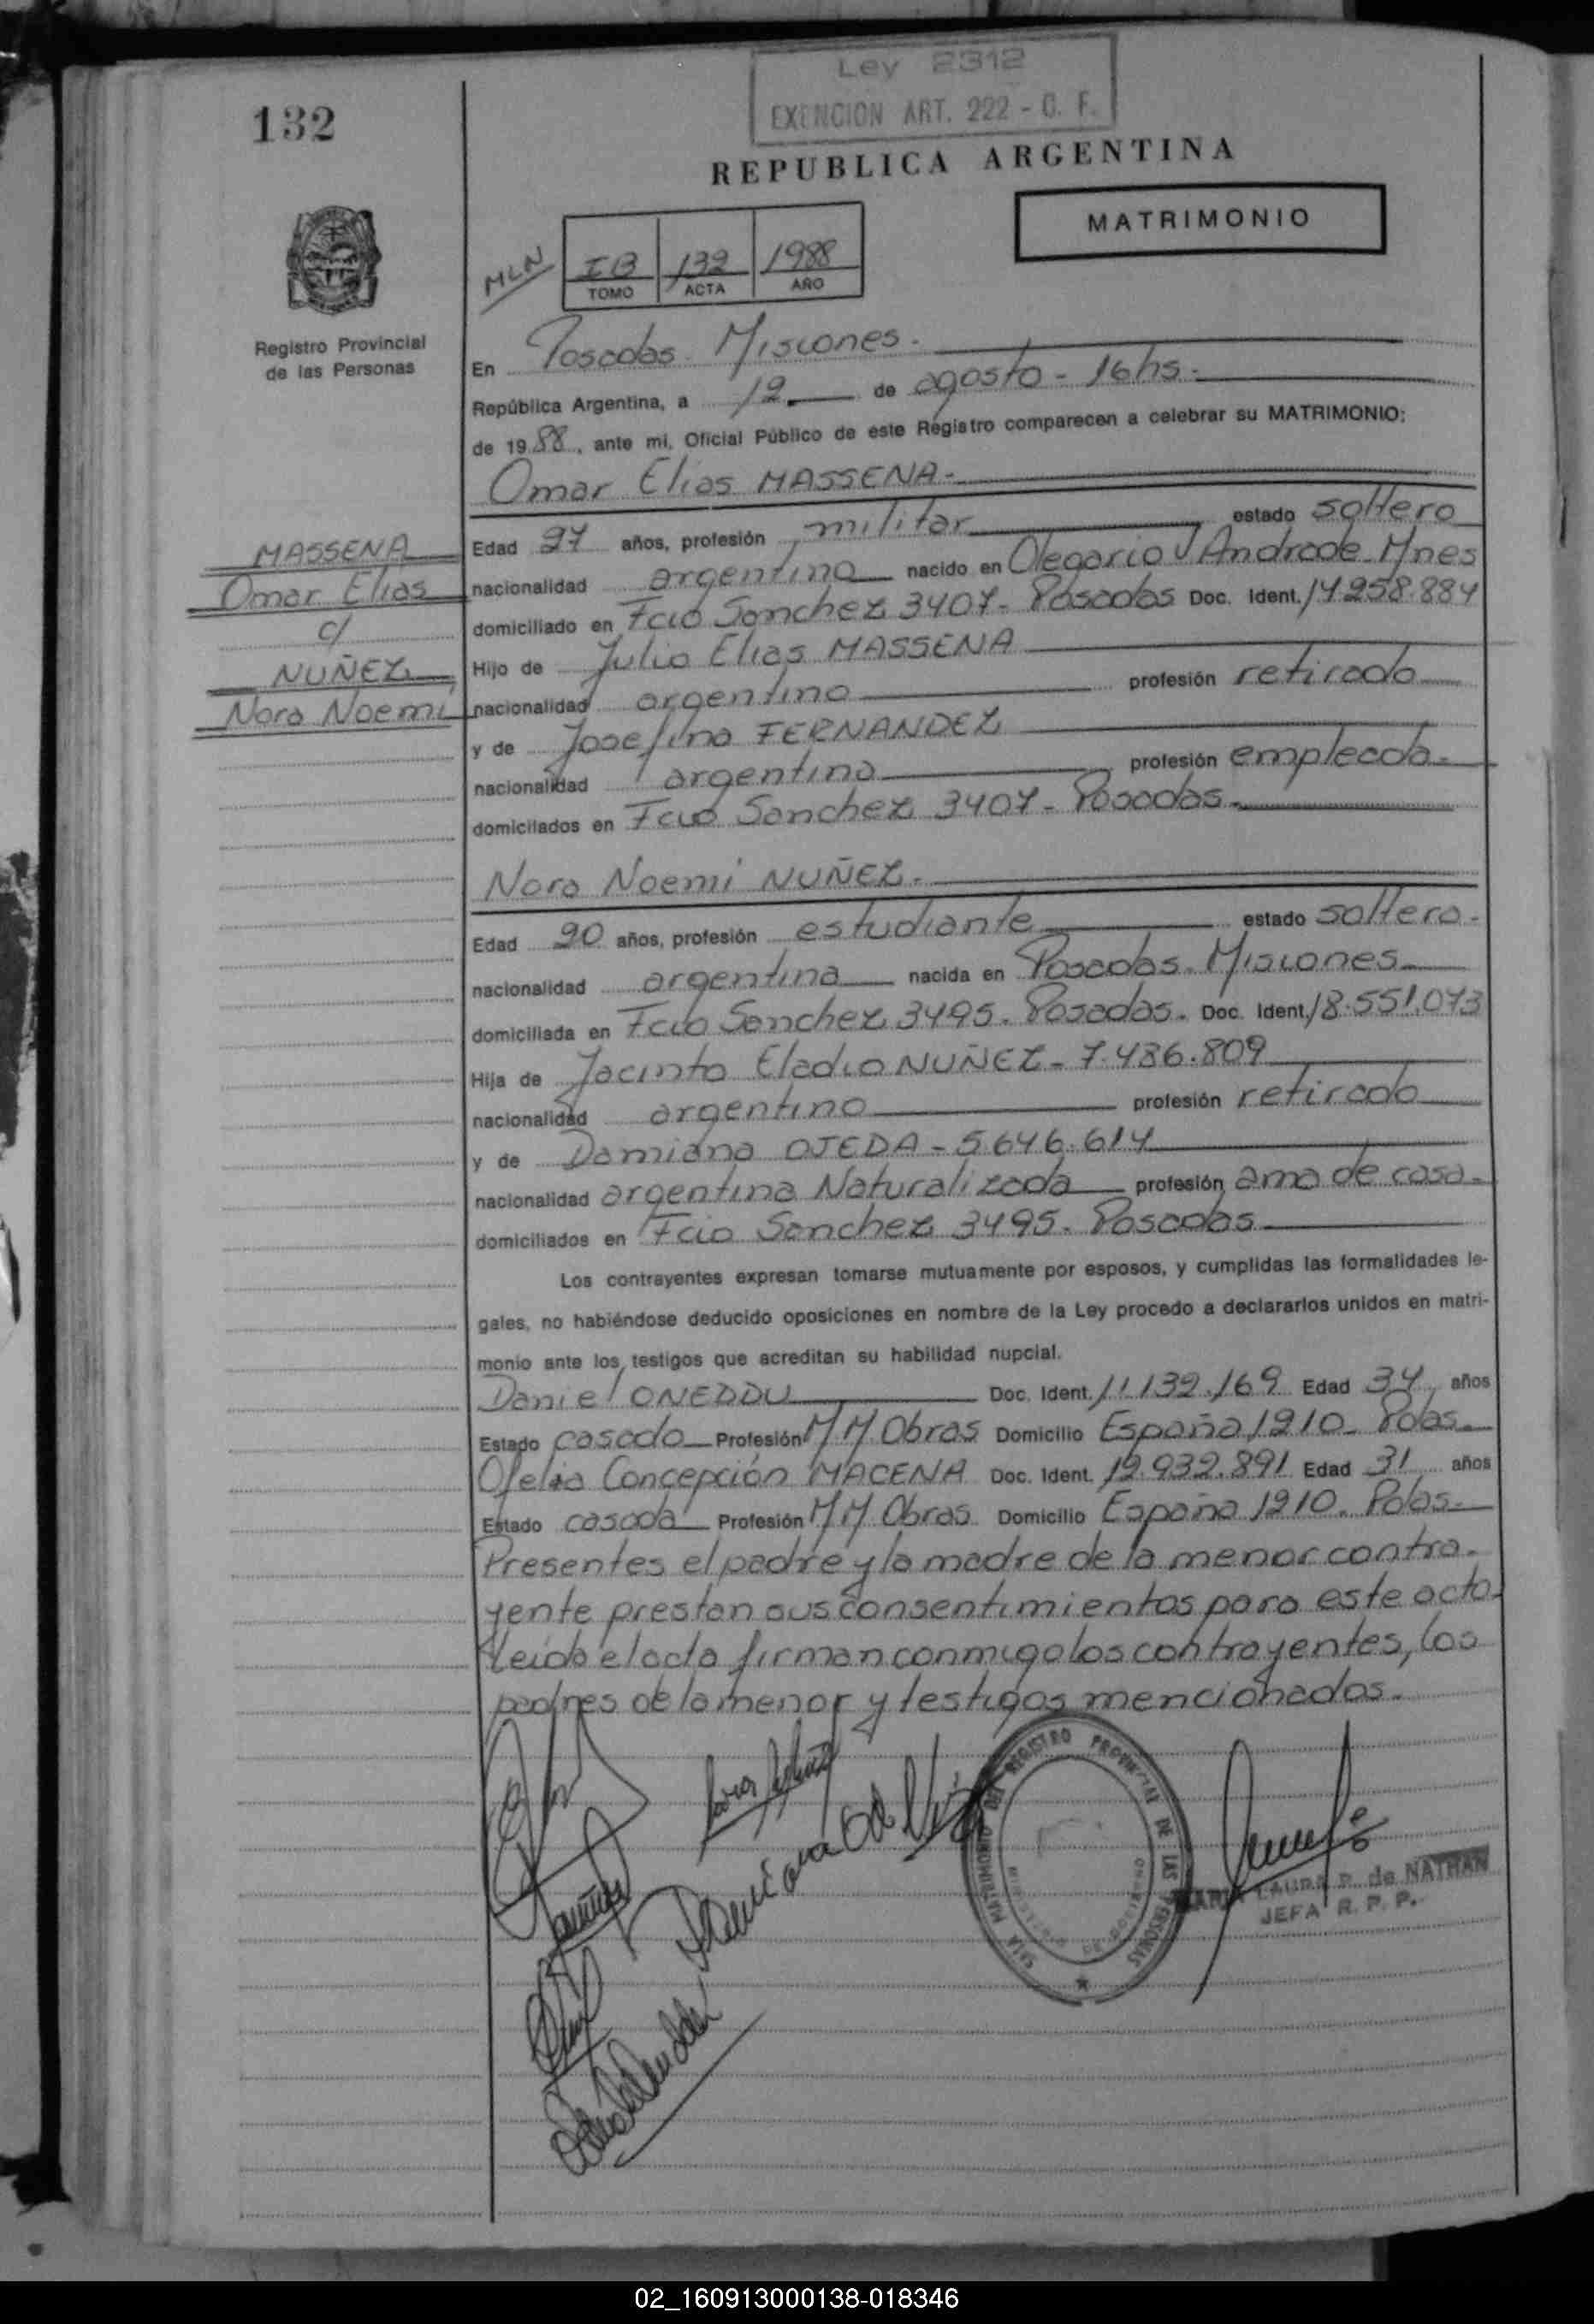 Ley 2312
EXENCION ART. 222 - C. F.
132
REPUBLICA ARGENTINA
MATRIMONIO
MLN
IB 132 1988
TOMO ACTA AÑO
Registro Provincial
de las Personas
En Posadas. Misiones.
República Argentina, a 12 de agosto - 16hs.
de 1988, ante mi, Oficial Público de este Registro comparecen a celebrar su MATRIMONIO:
Omar Elias MASSENA.
Edad 27 años, profesión militar estado soltero
nacionalidad argentina nacido en Olegario V Andrade Mnes
domiciliado en Fcio Sanchez 3407- Posadas Doc. Ident. 14.258.884
Hijo de Julio Elias MASSENA
nacionalidad argentino profesión retirado
y de Josefina FERNANDEZ
nacionalidad argentina profesión empleada.
domiciliados en Fcio Sanchez 3407- Posadas.
MASSENA
Omar Elias
c/
NUÑEZ
Nora Noemi
Nora Noemi NUÑEZ.
Edad 20 años, profesión estudiante estado soltera.
nacionalidad argentina nacida en Posadas. Misiones.
domiciliada en Fcio Sanchez 3495. Posadas. Doc. Ident. 18.551.073
Hija de Jacinto Eladio NUÑEZ - 7.486.809
nacionalidad argentino profesión retirado
y de Damiana OJEDA - 5.646.614
nacionalidad argentina Naturalizada profesión ama de casa.
domiciliados en Fcio Sanchez 3495. Posadas
Los contrayentes expresan tomarse mutuamente por esposos, y cumplidas las formalidades le-
gales, no habiéndose deducido oposiciones en nombre de la Ley procedo a declararlos unidos en matri-
monio ante los testigos que acreditan su habilidad nupcial.
Daniel ONEDDU Doc. Ident. 11.132.169 Edad 34 años
Estado casado Profesión M M Obras Domicilio España 1210. Pdas.
Ofelia Concepción MACENA Doc. Ident. 12.932.891 Edad 31 años
Estado casada Profesión M M Obras Domicilio España 1210. Pdas.
Presentes el padre y la madre de la menor contra-
yente prestan sus consentimientos para este acto.
Leída el acta firman conmigo los contrayentes, los
padres de la menor y testigos mencionados.
REGISTRO PROVINCIAL DE LAS PERSONAS
MARIA LAURA R. de NATHAN
JEFA R. P. P.
02_160913000138-018346